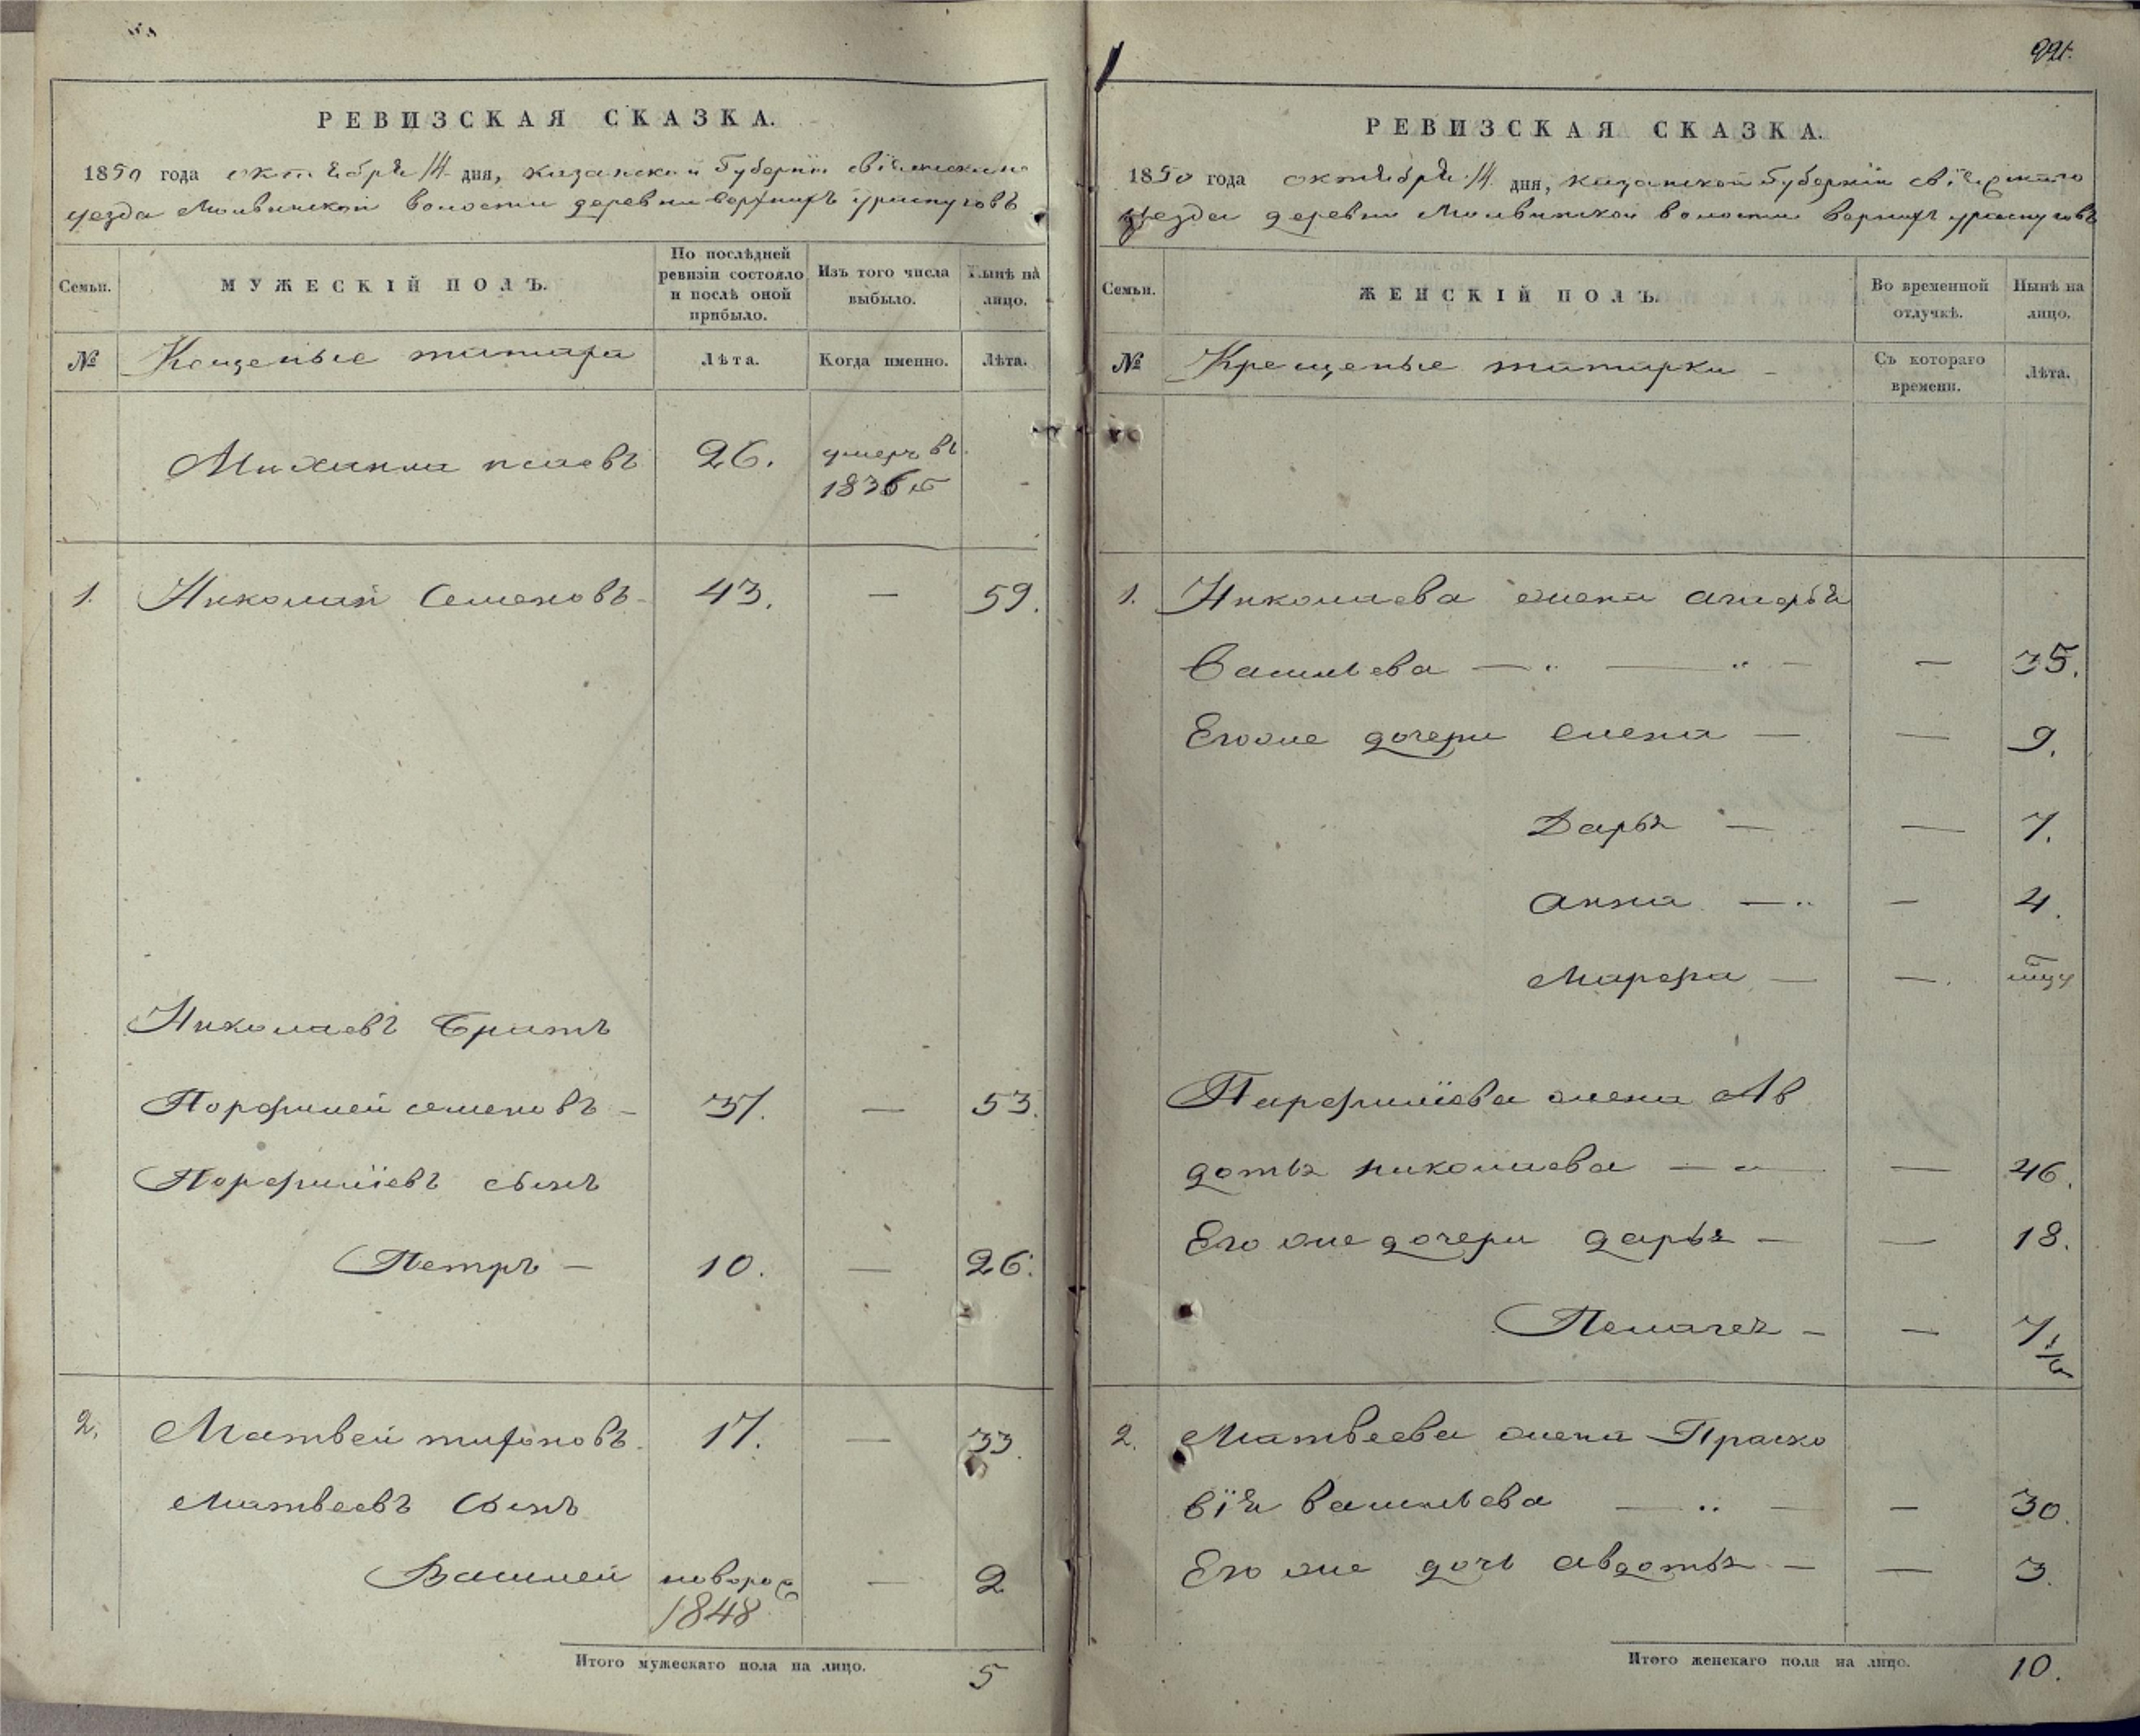 РЕВИЗСКАЯ СКАЗКА.
1850 года октября 14 дня, казанской Губернiи свiяжскаго
уезда Молвинской волости деревни верхнихъ ураспуговъ
Семьи.
МУЖЕСКIЙ ПОЛЪ.
По послѣдней ревизiи состояло и послѣ оной прибыло.
Изъ того числа выбыло.
Нынѣ на лицо.
№
Крещеные татара
Лѣта.
Когда именно.
Лѣта.
26.
умеръ въ
1836 го
1. Николай Семеновъ - 43. — 59.
Николаевъ братъ
Порфилей семеновъ - 37. — 53.
Порфилiевъ сынъ
Петръ — 10. — 26.
2. Матвей тифоновъ. 17. — 33.
Матвеевъ Сынъ
Василей новорож
1848 — 2
Итого мужескаго пола на лицо. 5
221.
РЕВИЗСКАЯ СКАЗКА.
1850 года октября 14 дня, казанской Губернiи свiяжскаго
уезда деревни Молвинской волости верхнихъ ураспуговъ
Семьи.
ЖЕНСКIЙ ПОЛЪ.
Во временной отлучкѣ.
Нынѣ на лицо.
№
Крещеные татарки -
Съ котораго времени.
Лѣта.
1. Николаева жена
Васильева — — — 35.
Его же дочери елена — — 9.
Дарья — — 7.
анна — — 4.
Марфа — —
Парфилiева жена Ав
дотья николаева — — — 46.
Его же дочери дарья — — 18.
Пелагея — — 7 1/2
2. Матвеева жена Праско
вiя васильева — — — 30.
Его же дочь авдотья — — 3.
Итого женскаго пола на лицо. 10.